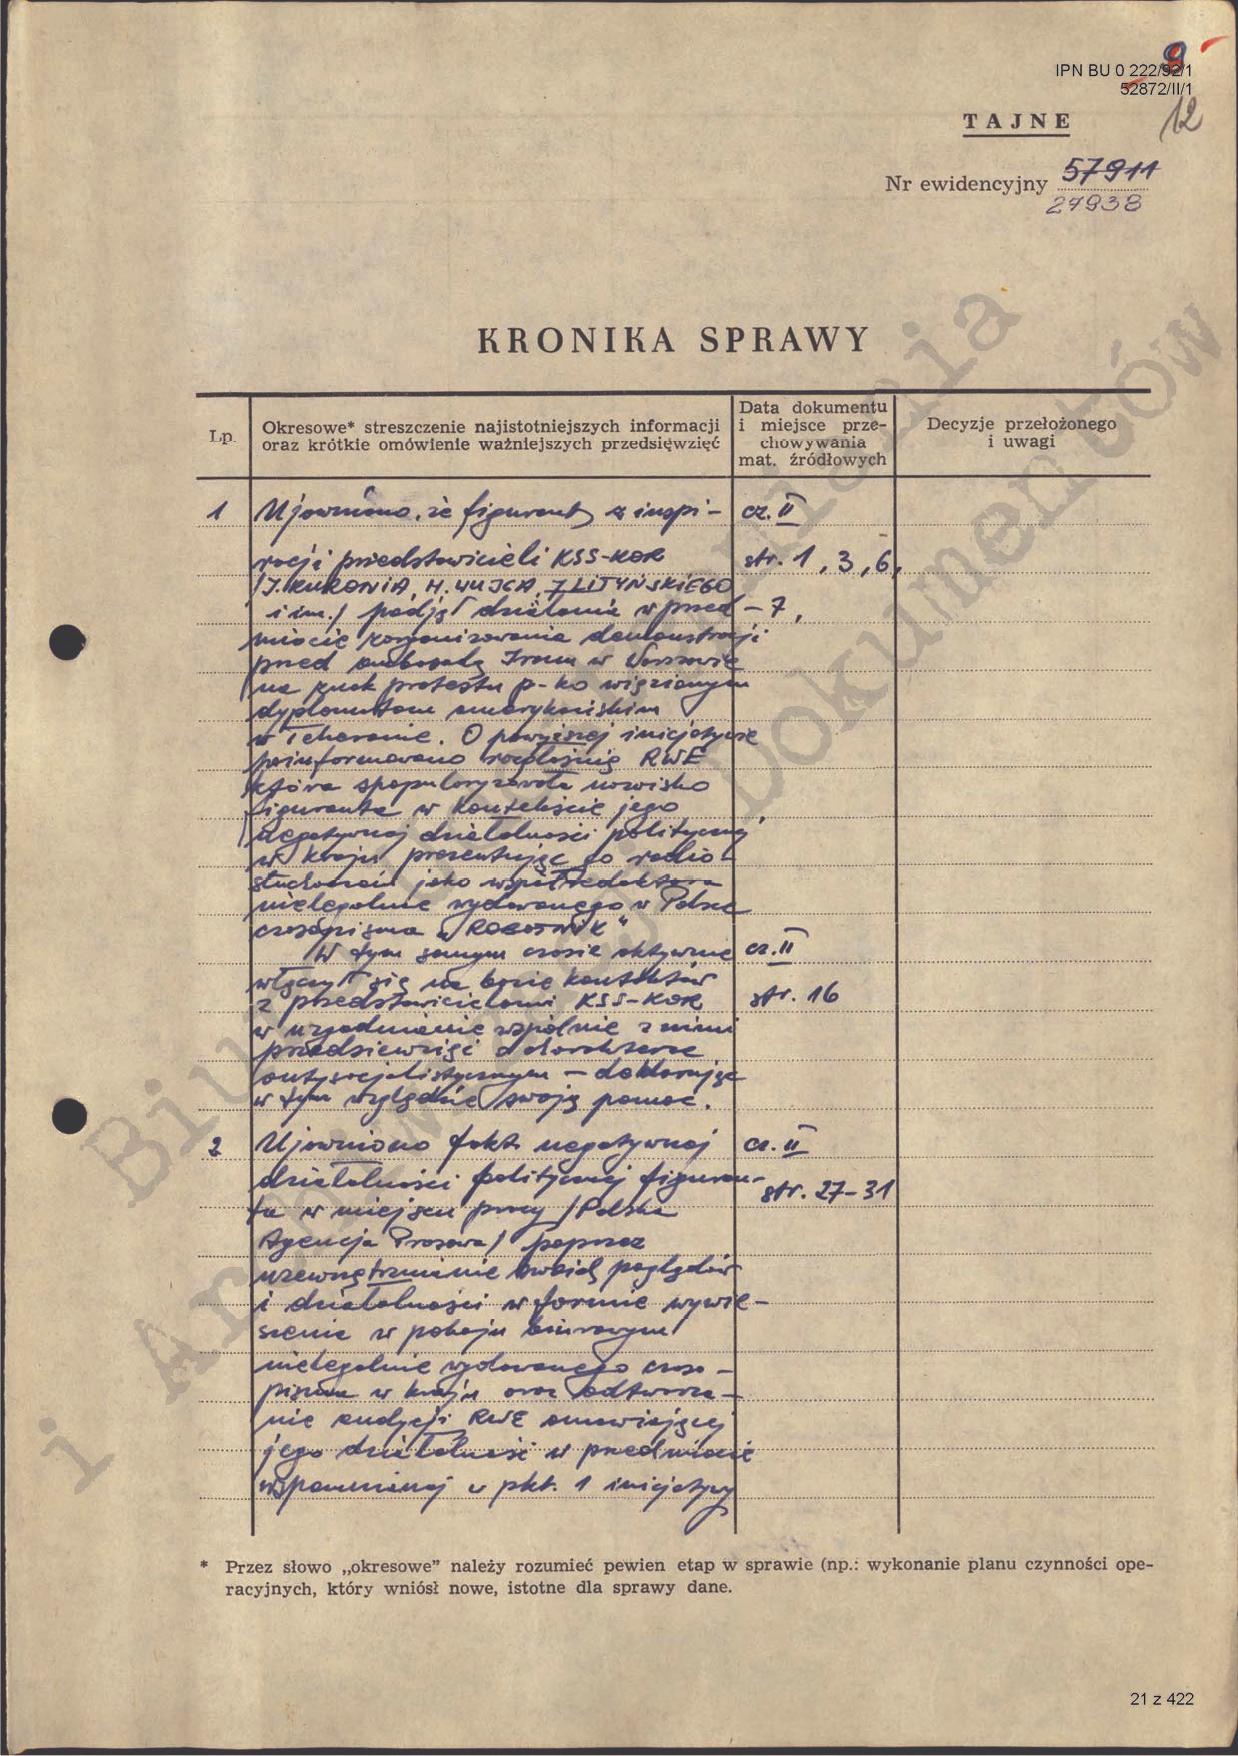 9
IPN BU 0 222/92/1
52872/II/1
12
TAJNE
Nr ewidencyjny 57911
27938
KRONIKA SPRAWY
Lp.
Okresowe* streszczenie najistotniejszych informacji
oraz krótkie omówienie ważniejszych przedsięwzięć
Data dokumentu
i miejsce prze-
chowywania
mat. źródłowych
Decyzje przełożonego
i uwagi
1 Ujawniono, że figurant z inspi- cz. II
racji przedstawicieli KSS-KOR str. 1, 3, 6,
/J. KURONIA, H. WUJCA, J. LITYŃSKIEGO
i in./ podjął działania w przed- 7,
miocie zorganizowania demonstracji
przed ambasadą Iranu w Warszawie
na znak protestu p-ko więzionym
dyplomatom amerykańskim
w Teheranie. O powyższej inicjatywie
poinformowano rozgłośnię RWE
która spopularyzowała nazwisko
figuranta w kontekście jego
negatywnej działalności politycznej
w kraju prezentując go radio-
słuchaczom jako współredaktora
nielegalnie wydawanego w Polsce
czasopisma „ROBOTNIK"
W tym samym czasie aktywnie cz. II
włączył się na bazie kontaktów
z przedstawicielami KSS-KOR str. 16
w uzgadnianie wspólnie z nimi
przedsięwzięć o charakterze
antysocjalistycznym – deklarując
w tym względzie swoją pomoc.
2 Ujawniono fakt negatywnej cz. II
działalności politycznej figuran- str. 27-31
ta w miejscu pracy /Polska
Agencja Prasowa/ poprzez
uzewnętrznienie swoich poglądów
i działalności w formie wywie-
szenia w pokoju biurowym
nielegalnie wydawanego czaso-
pisma w kraju oraz odtwarza-
nie audycji RWE omawiającej
jego działalność w przedmiocie
wspomnianej w pkt. 1 inicjatywy
* Przez słowo „okresowe” należy rozumieć pewien etap w sprawie (np.: wykonanie planu czynności ope-
racyjnych, który wniósł nowe, istotne dla sprawy dane.
Biuro Udostępniania
i Archiwizacji Dokumentów
21 z 422